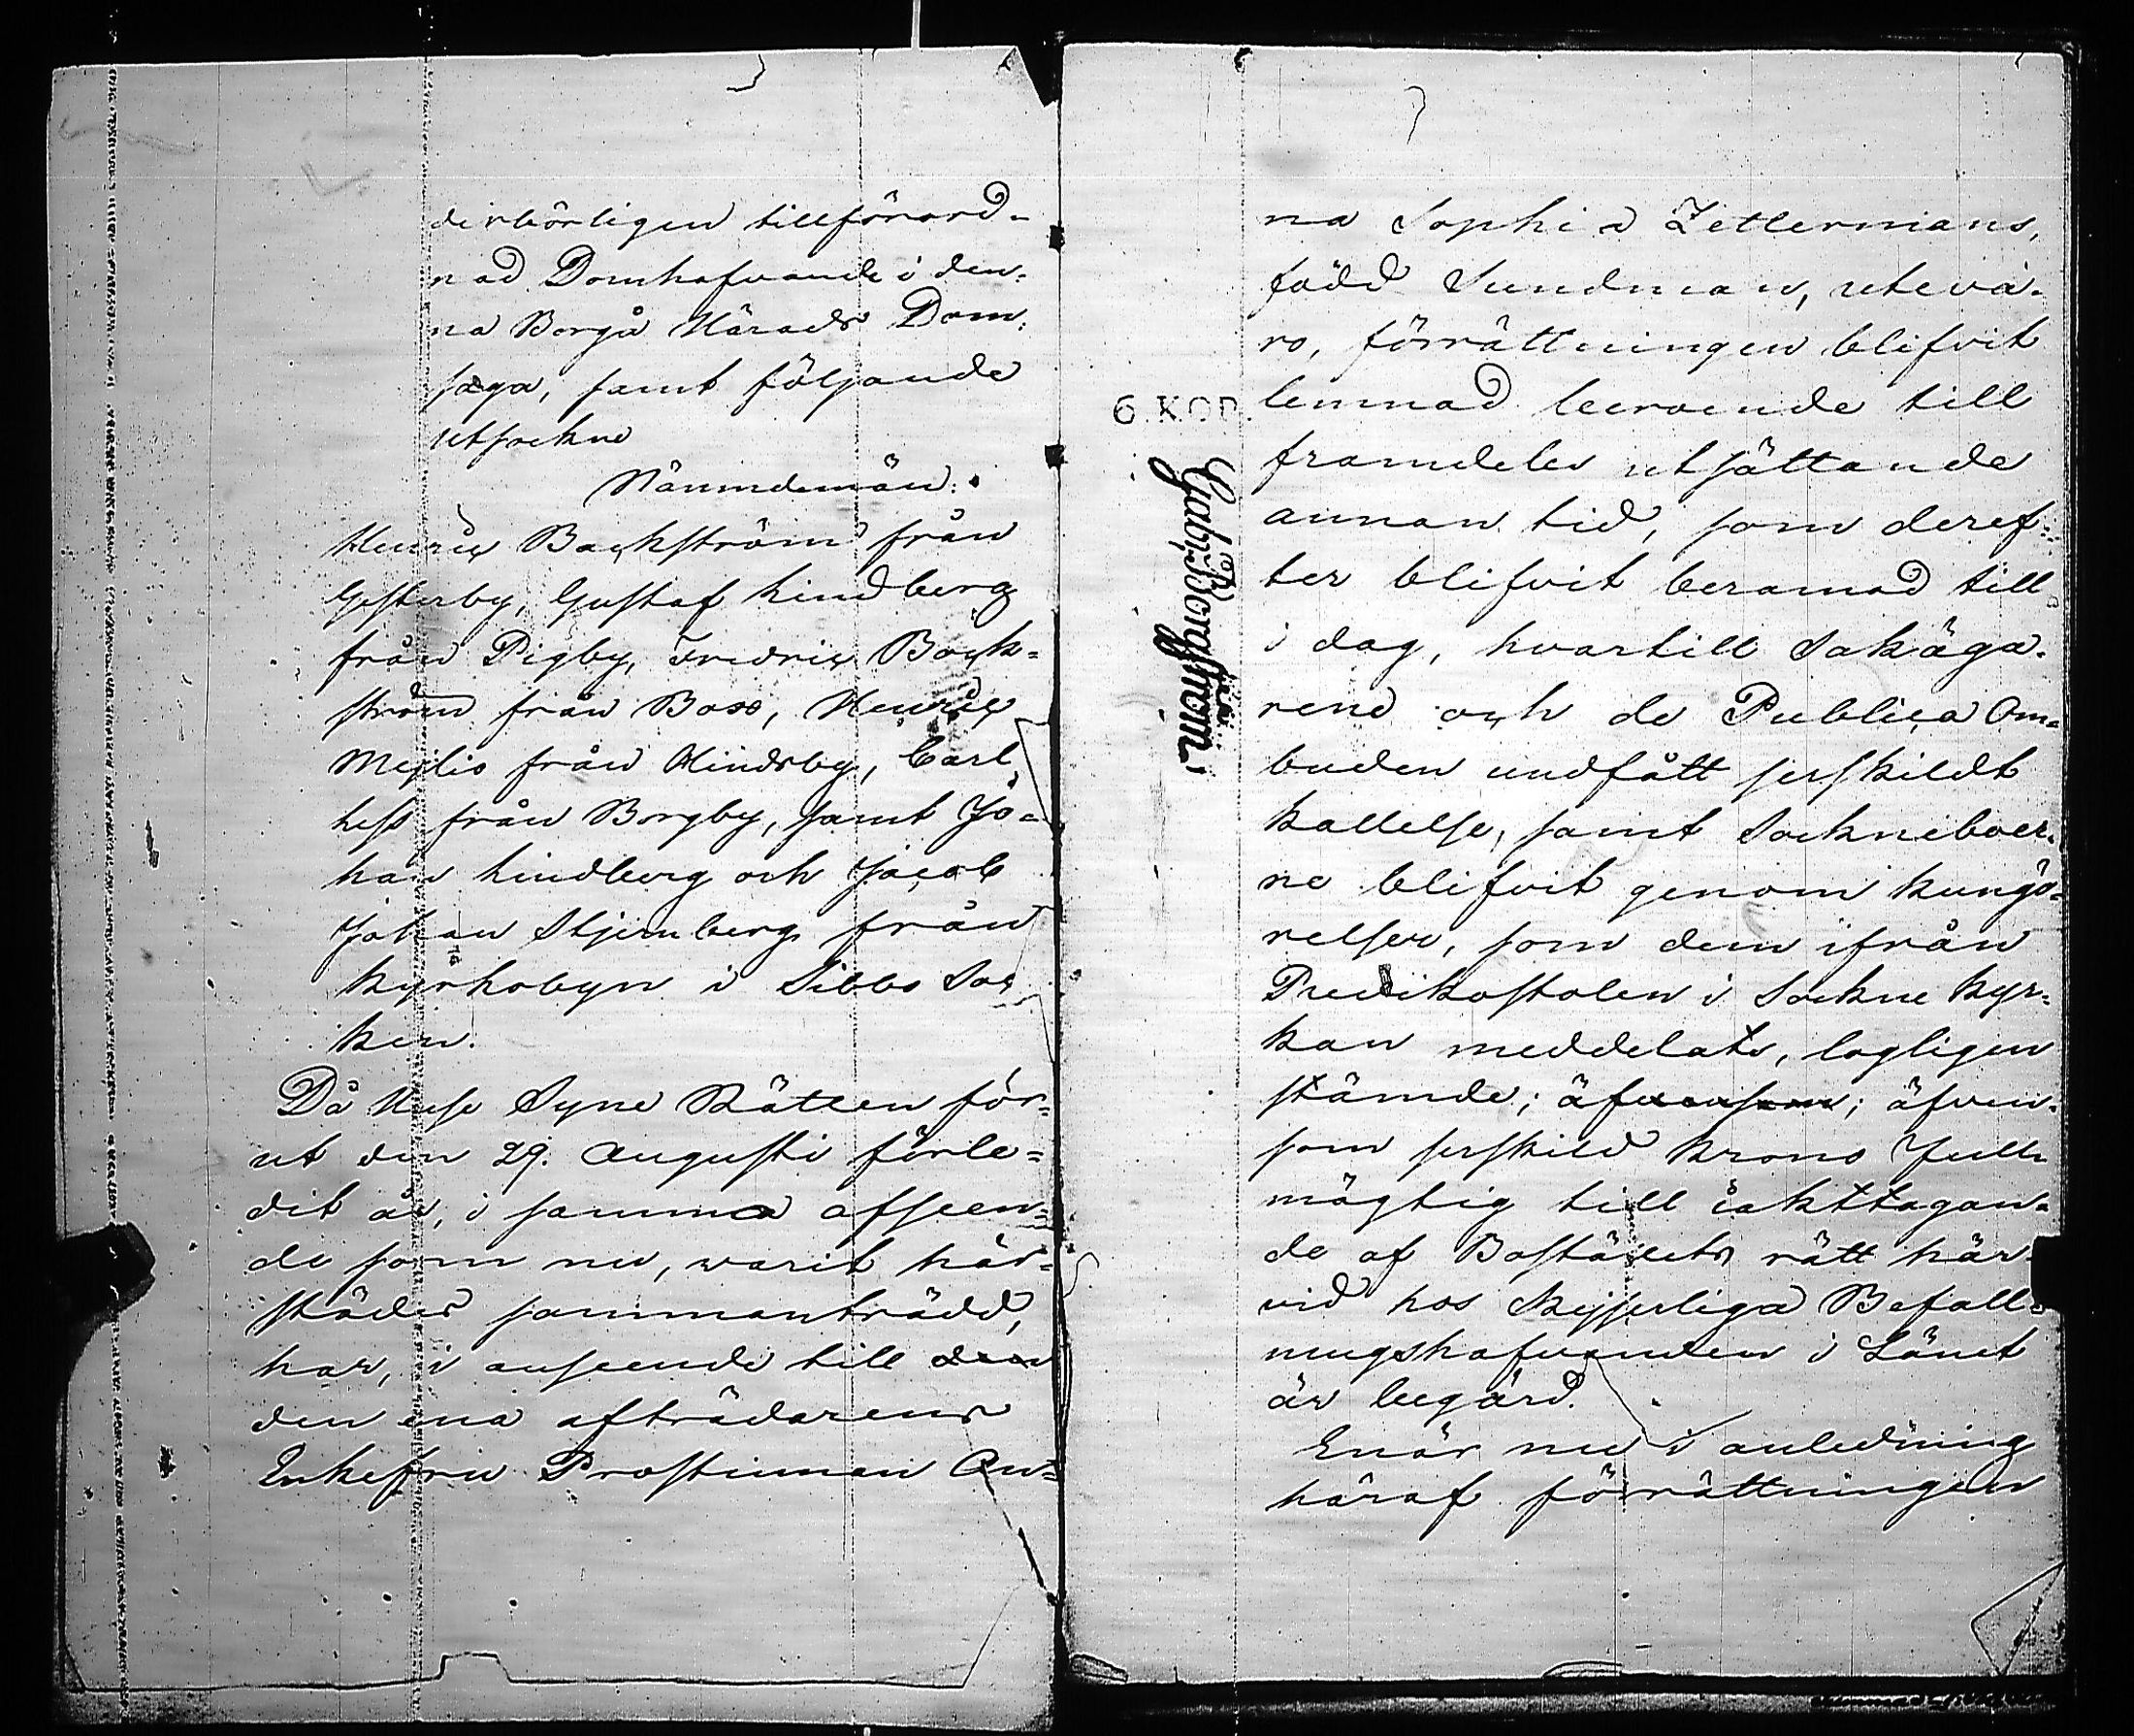 derbörligen tillförord-
nad Domhafvande i den-
na Borgå Härads Dom-
saga, samt följande
utsockne
Nämndemän:
Henric Backström från
Gesterby, Gustaf Lindberg
från Pigby, Fredric Back-
ström från Boxs, Henric
Mejlis från Hindsby, Carl
Less från Borgby, samt Jo-
han Lindberg och Jacob
Johan Stjernberg från
Kyrkobyn i Sibbo Soc
ken.
Då Huse Syne Rätten för-
ut den 29. Augusti förle-
dit år, i samma afseen-
de som nu, varit här-
städes sammanträdd,
har, i anseende till den
den ena afträdarens
Enkefru Prostinnan An-
na Sophia Zetlermans,
född Sundman, utevä-
ro, förrättningen blifvit
lemnad beroende till
6 KOP.
framdeles utsättande
annan tid, som deref-
ter blifvit beramad till
i dag, hvartill Sakäga-
rene och de Publica Om-
buden undfått serskildt
kallelse, samt Sockneboer-
ne blifvit genom kungö-
relser, som dem ifrån
Predikostolen i Sockne Kyr-
kan meddelats, lagligen
stämde; äfvensom; äfven-
som serskild Krono Full-
mägtig till iakttagan-
de af Boställets rätt här-
vid hos Kejserliga Befall-
ningshafvanden i Länet
är begärd.
Enär nu i anledning
häraf förrättningen
Gab. Borgström